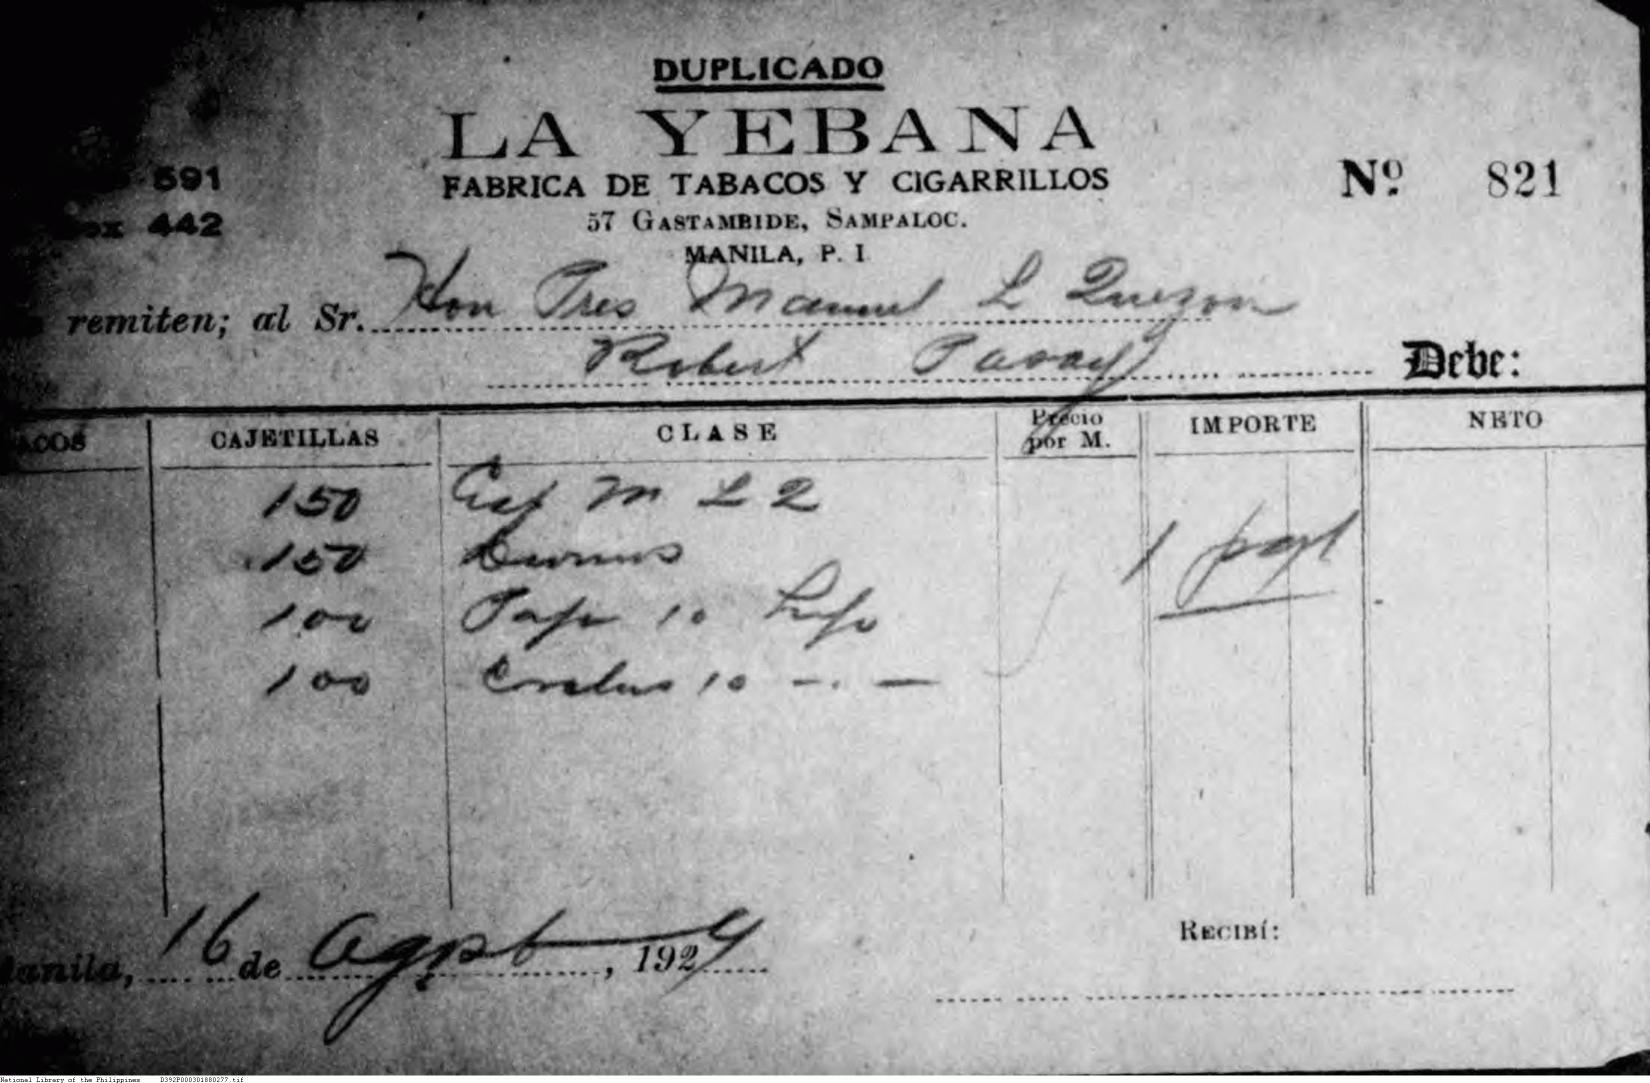 DUPLICADO
LA YEBANA
591
FABRICA DE TABACOS Y CIGARRILLOS
Nº. 821
442
57 GASTAMBIDE, SAMPALOC.
MANILA, P. I
remiten; al Sr. Hon Pres Manuel L Quezon
Robert Debe:
CAJETILLAS CLASE Precio por M. IMPORTE NETO
150 M L Q
150
1
100 10
100 10
Manila, 16 de Agsto, 1924
RECIBÍ:
National Library of the Philippines D392P000301880277.tif